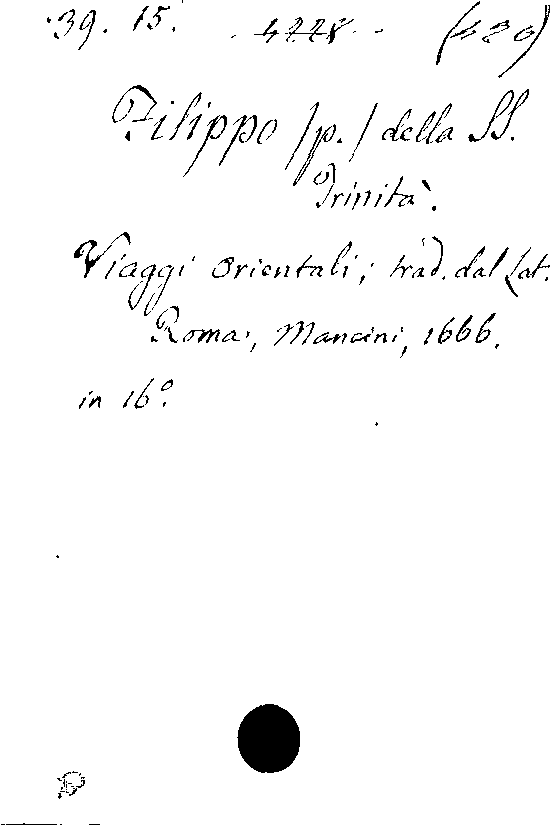 39. 15. 4228 (420)
Filippo /p./ della SS.
Trinità.
Viaggi orientali; trad. dal Lat.
Roma, Mancini, 1666.
in 16°.